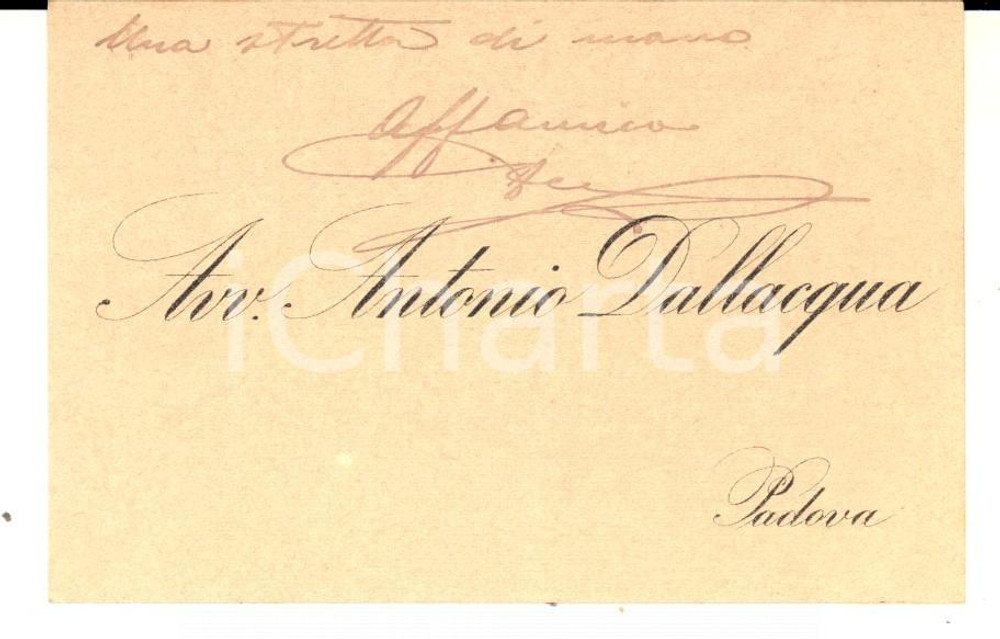 Una stretta di mano
Aff amico
Avv. Antonio Dallacqua
iCharta
Padova